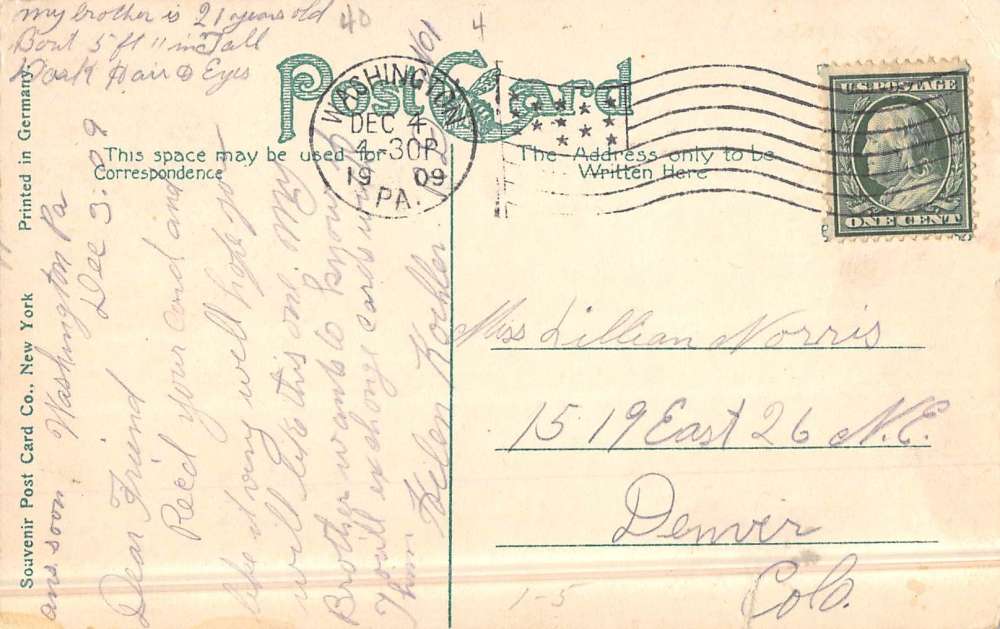 my brother is 21 years old
Bout 5 ft 11 in Tall
Dark Hair & Eyes
40
4
No1
Post Card
WASHINGTON
DEC 4
4-30P
1909
PA.
U.S. POSTAGE
ONE CENT
This space may be used for
Correspondence
The Address only to be
Written Here
Printed in Germany.
Souvenir Post Card Co., New York
ans. soon
Washington Pa
Dec 3. 09
Dear Friend
Recd your card and
like it very well hope you
will like this one. My
Brother wants to know if
you'll exchange cards with
him
Helen Koehler
Miss Lillian Norris
1519 East 26 N.E.
Denver
Colo.
1-5